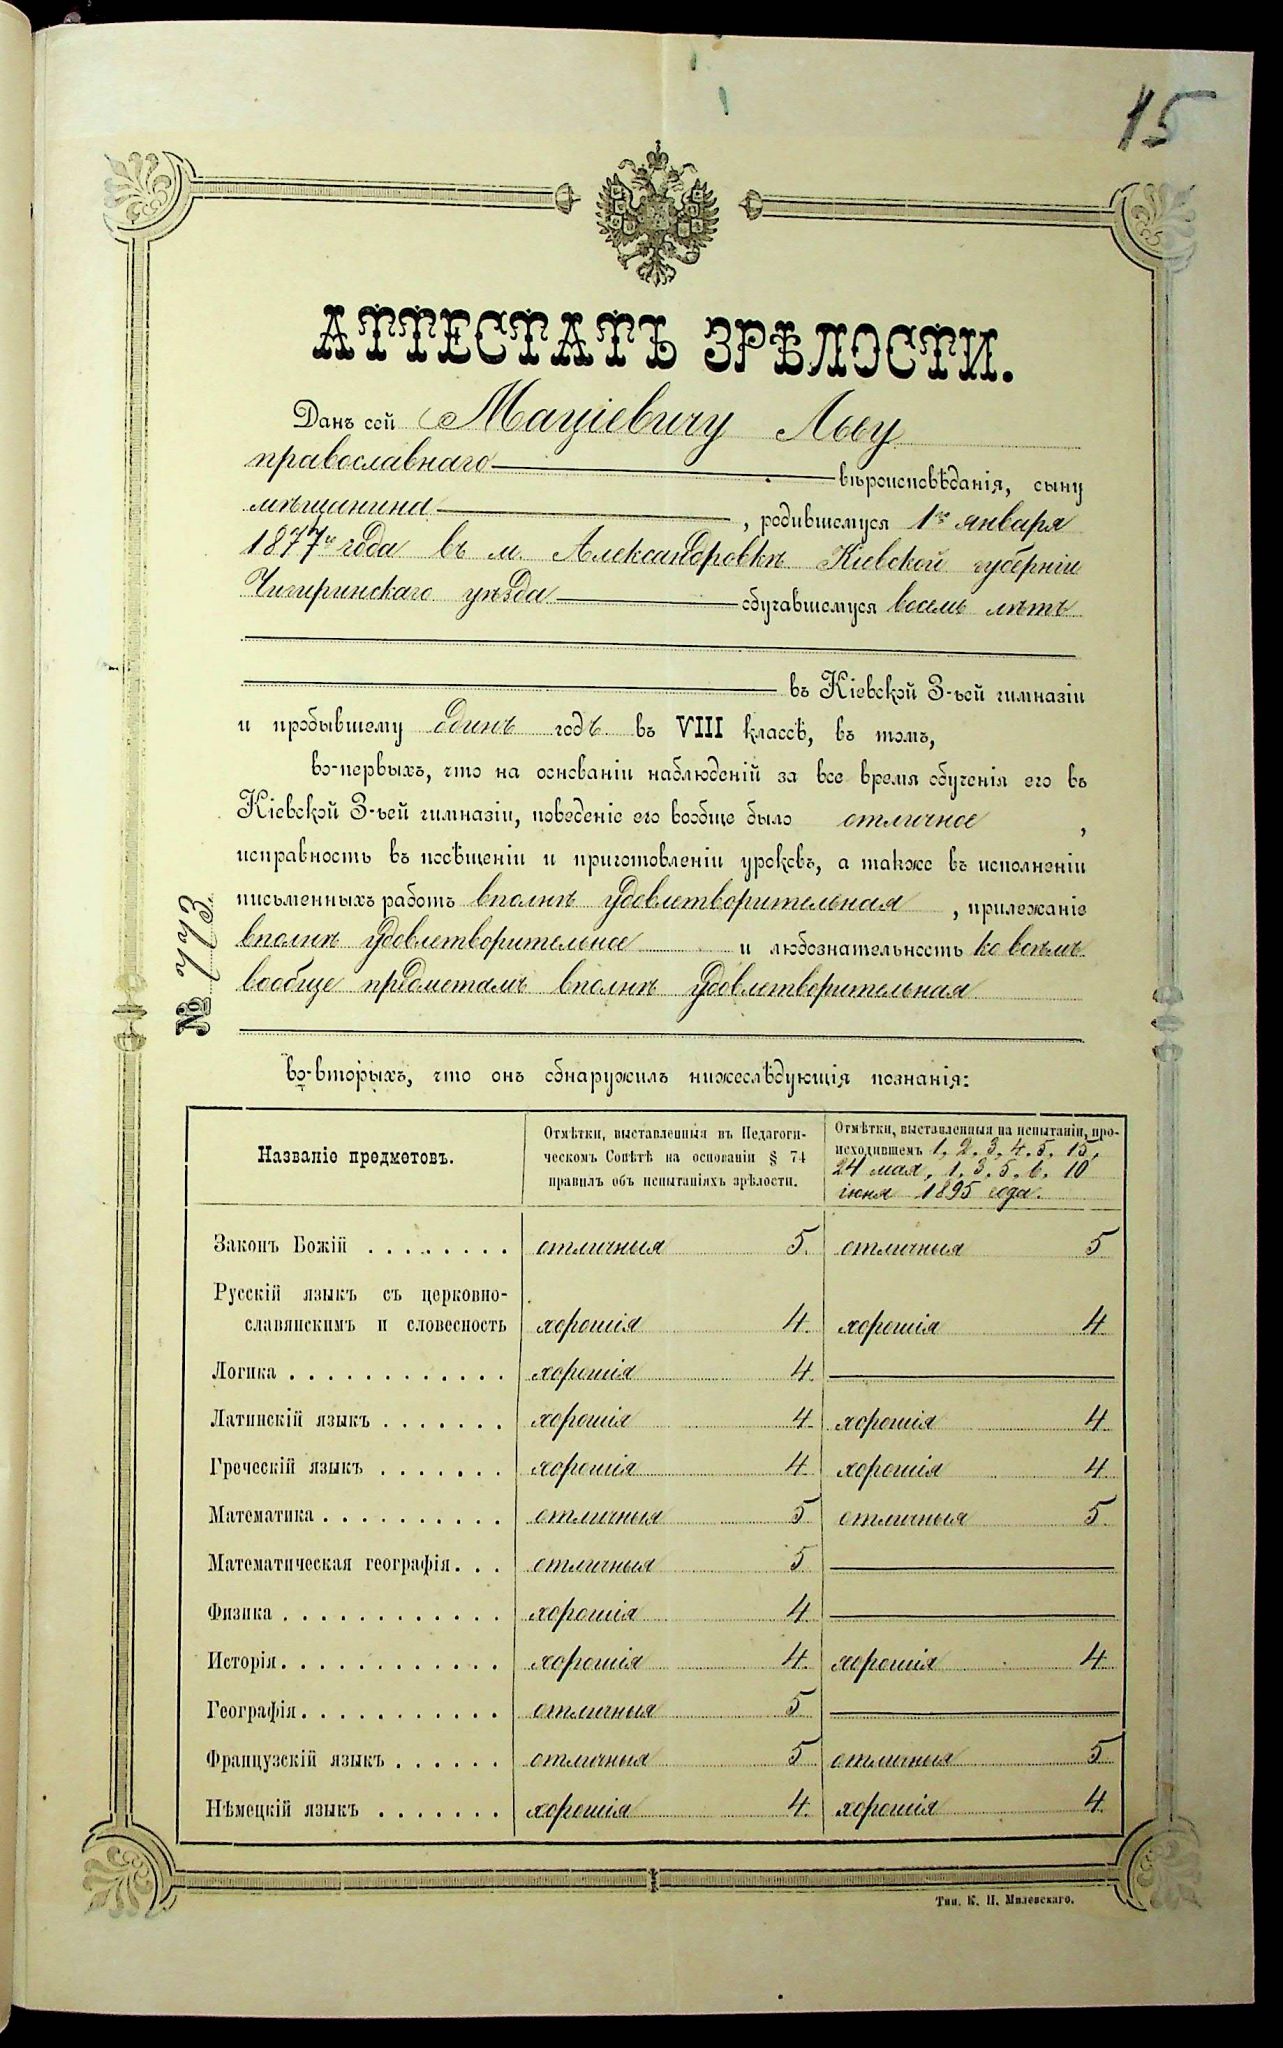 15
АТТЕСТАТЪ ЗРѢЛОСТИ.
Данъ сей Мацiевичу Льву
православнаго вѣроисповѣданiя, сыну
мѣщанина, родившемуся 1го января
1877го года въ м. Александровкѣ Кiевской губернiи
Чигиринскаго уѣзда обучавшемуся восемь лѣтъ
въ Кiевской 3-ьей гимназiи
и пробывшему одинъ годъ въ VIII классѣ, въ томъ,
во-первыхъ, что на основанiи наблюденiй за все время обученiя его въ
Кiевской 3-ьей гимназiи, поведенiе его вообще было отличное,
исправность въ посѣщенiи и приготовленiи уроковъ, а также въ исполненiи
письменныхъ работъ вполнѣ удовлетворительная, прилежанiе
вполнѣ удовлетворительное и любознательность ко всѣмъ
вообще предметамъ вполнѣ удовлетворительная
№
во-вторыхъ, что онъ обнаружилъ нижеслѣдующiя познанiя:
Названiе предметовъ.
Отмѣтки, выставленныя въ Педагоги-
ческомъ Совѣтѣ на основанiи § 74
правилъ объ испытанiяхъ зрѣлости.
Отмѣтки, выставленныя на испытанiи, про-
исходившемъ 1, 2, 3, 4, 5, 15,
24 мая, 1, 3, 5, 6, 10
iюня 1895 года.
Законъ Божiй . . . . . . . . отличныя 5. отличныя 5
Русскiй языкъ съ церковно-
славянскимъ и словесность хорошiя 4. хорошiя 4
Логика . . . . . . . . . . . . хорошiя 4.
Латинскiй языкъ . . . . . . . хорошiя 4. хорошiя 4.
Греческiй языкъ . . . . . . . хорошiя 4. хорошiя 4.
Математика . . . . . . . . . . отличныя 5 отличныя 5.
Математическая географiя. . . отличныя 5.
Физика . . . . . . . . . . . . хорошiя 4.
Исторiя. . . . . . . . . . . . хорошiя 4. хорошiя 4.
Географiя. . . . . . . . . . . отличныя 5
Французскiй языкъ . . . . . . отличныя 5 отличныя 5
Нѣмецкiй языкъ . . . . . . . хорошiя 4. хорошiя 4.
Тип. К. Н. Милевскаго.